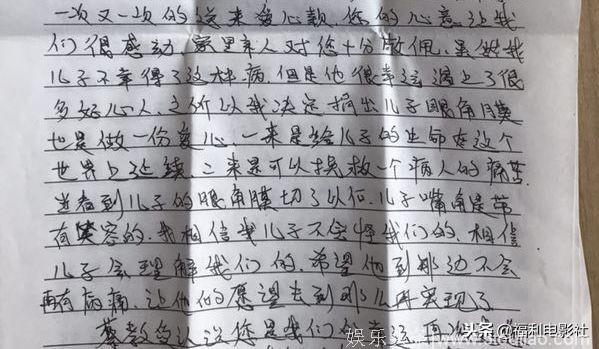 一次又一次的送来爱心款，您的心意让我
们很感动，家里亲人对您十分敬佩，虽然我
儿子不幸得了这样病，但是他很幸运遇上了很
多好心人，之所以我决定捐出儿子眼角膜
也是做一份爱心，一来是给儿子的生命在这个
世界上延续，二来是可以挽救一个病人的痛苦
当看到儿子的眼角膜切了以后，儿子嘴角是带
有笑容的，我相信我儿子不会怪我们的，相信
儿子会理解我们的，希望他到那边不会
再有病痛，让他的愿望去到那儿再实现了
蔡教 认识您是我们
头条 @福利电影社
娱乐